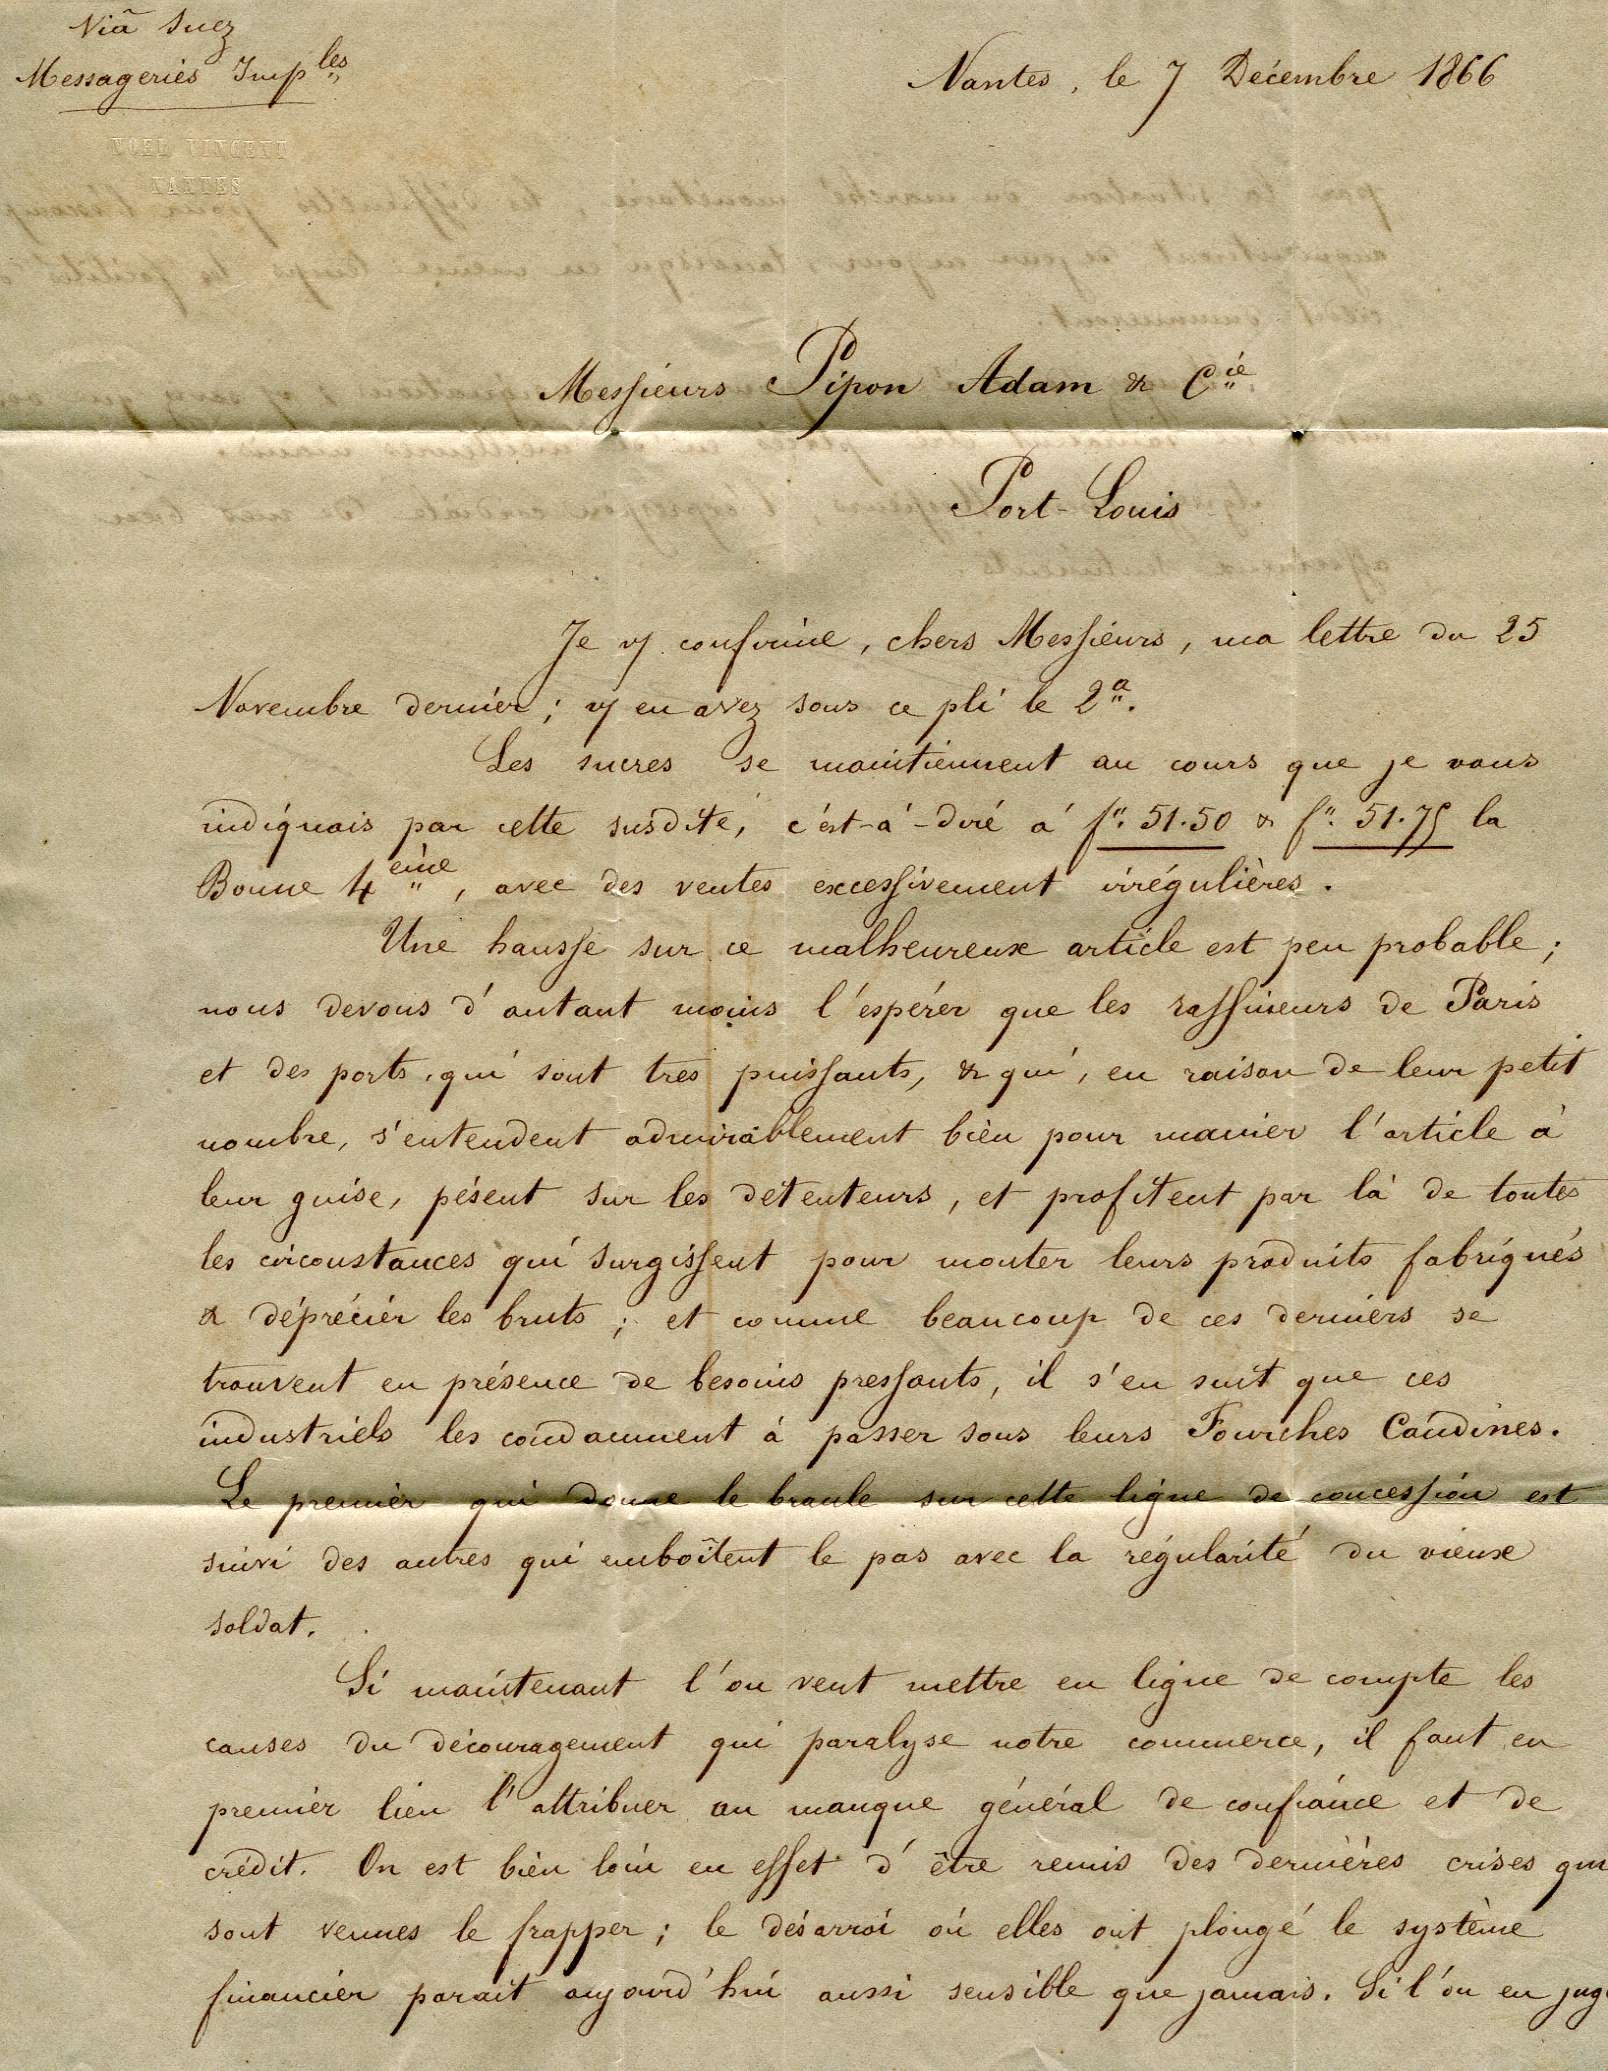 Viâ Suez
Messageries Imp.les
NOEL VINCENT
NANTES
Nantes, le 7 Décembre 1866
Messieurs Pipon Adam & Cie
Port-Louis
Je vs confirme, chers Messieurs, ma lettre du 25
Novembre dernier; vs en avez sous ce pli le 2a.
Les sucres se maintiennent au cours que je vous
indiquais par cette susdite, c'est-à-dire à fr. 51.50 & fr. 51.75 la
Bonne 4ème, avec des ventes excessivement irrégulières.
Une hausse sur ce malheureux article est peu probable;
nous devons d'autant moins l'espérer que les raffineurs de Paris
et des ports, qui sont tres puissants, & qui, en raison de leur petit
nombre, s'entendent admirablement bien pour manier l'article à
leur guise, pésent sur les détenteurs, et profitent par là de toutes
les circonstances qui surgissent pour monter leurs produits fabriqués
& déprécier les bruts; et comme beaucoup de ces derniers se
trouvent en présence de besoins pressants, il s'en suit que ces
industriels les condamnent à passer sous leurs Fourches Caudines.
Le premier qui donne le branle sur cette ligne de concession est
suivi des autres qui emboîtent le pas avec la régularité du vieux
soldat.
Si maintenant l'on veut mettre en ligne de compte les
causes du découragement qui paralyse notre commerce, il faut en
premier lieu l'attribuer au manque général de confiance et de
crédit. On est bien loin en effet d'être remis des dernières crises qui
sont venues le frapper; le désarroi où elles ont plongé le système
financier parait aujourd'hui aussi sensible que jamais. Si l'on en juge